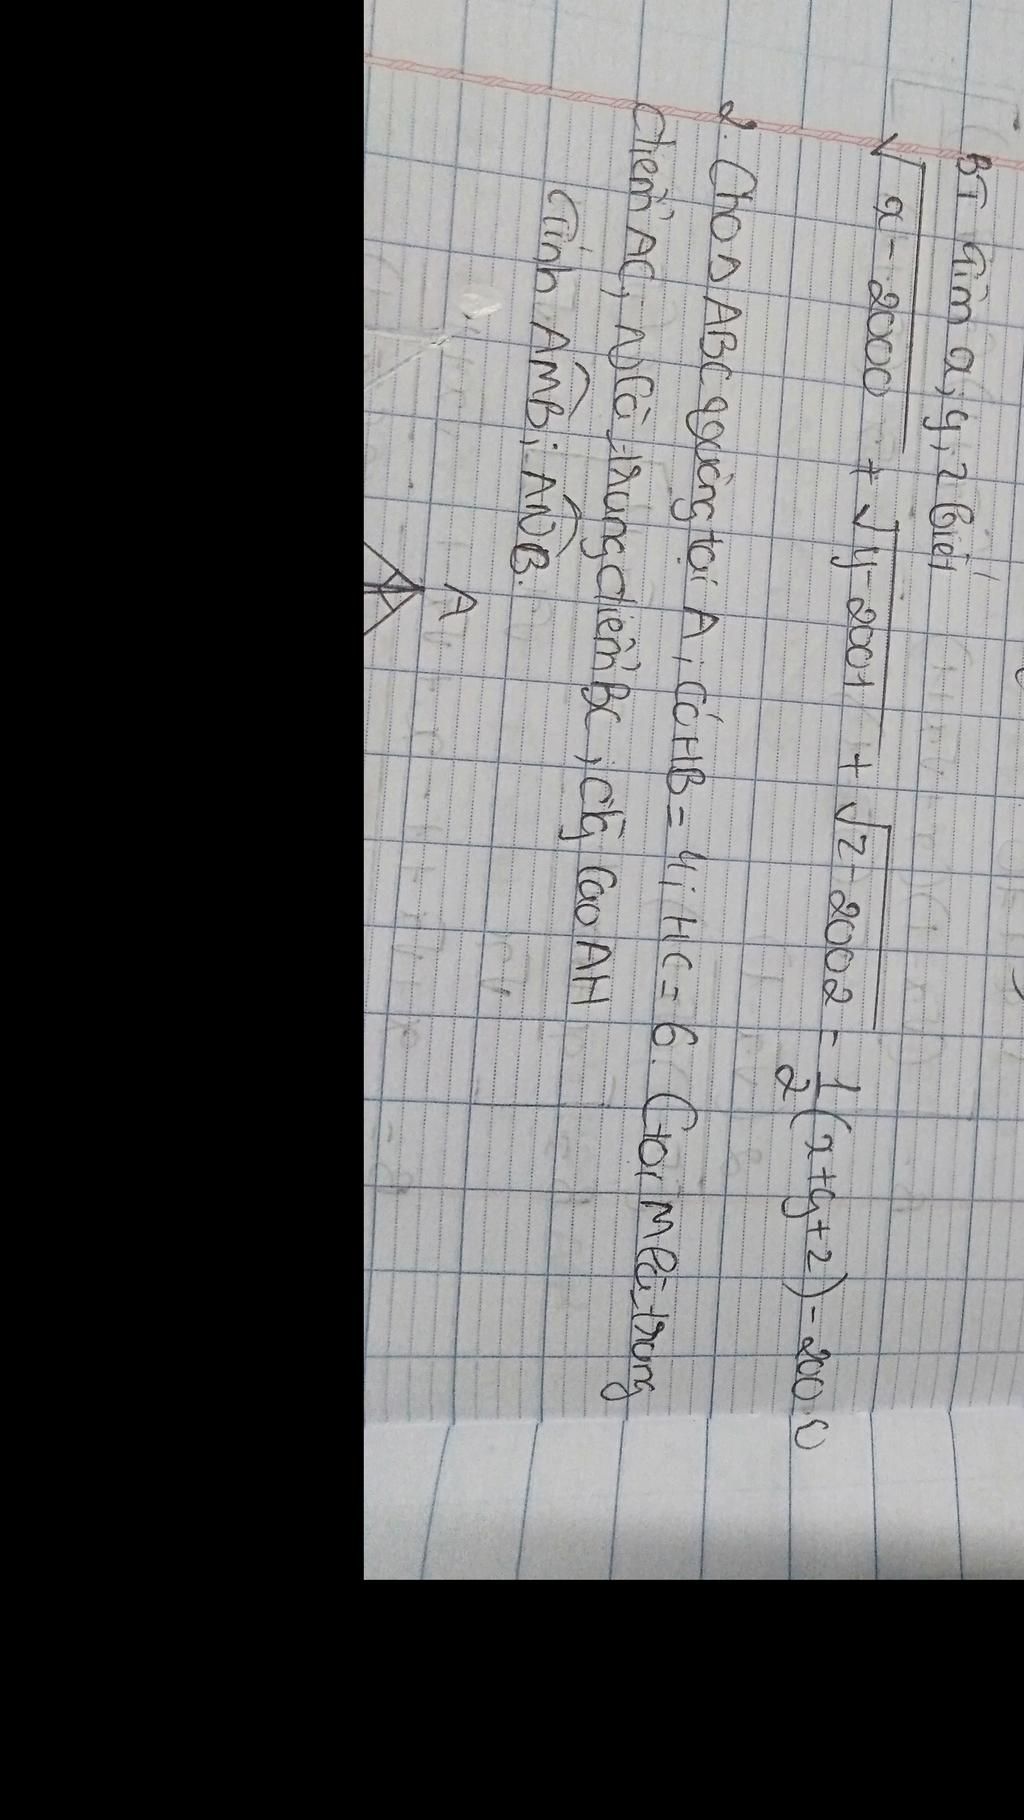 BT Tìm x, y, z biết
√x - 2000 + √y - 2001 + √z - 2002 = 1/2 (x+y+z) - 3000
2. Cho Δ ABC vuông tại A, có HB = 4, HC = 6. Gọi M là trung
điểm AC, N là trung điểm BC, đg cao AH
Tính AMB; ANB.
A